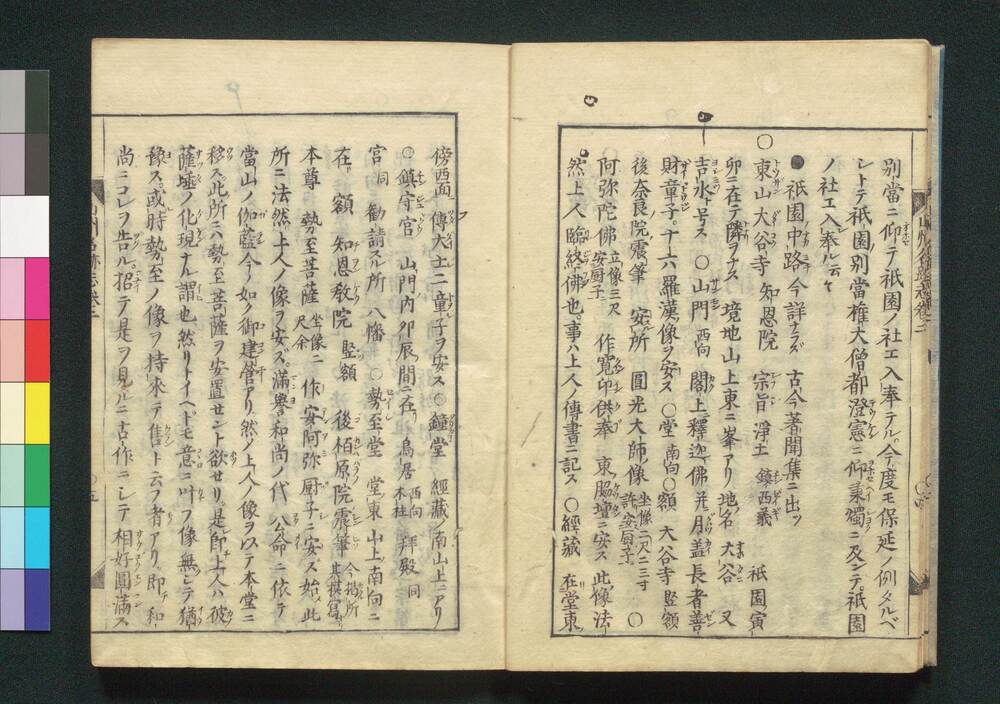 別當ニ仰テ祇園ノ社エ入奉テル今度モ保延ノ例タルベ
シトテ祇園別當権大僧都澄憲ニ仰秉燭ニ及ンテ祇園
ノ社エ入奉ル云々
●祇園中路 今詳ナラズ 古今著聞集ニ出ツ
○東山大谷寺知恩院 宗旨浄土 鎮西義 祇園寅
卯ニ在テ隣ヲナス 境地山上東ニ峯アリ地名大谷 又
吉水ト号ス ○山門 西向 閣上ニ釋迦佛 并月盖長者善
財童子 十六羅漢像ヲ安ス ○堂 南向 ○額 大谷寺 竪額
後奈良院震筆 安所 圓光大師像 坐像二尺二三寸 許安厨子 ○
阿弥陀佛 立像三尺 安厨子 作寛印供奉 東脇壇ニ安ス 此像法
然上人臨終佛也 事ハ上人ノ傳書ニ記ス ○經藏 在堂東
傍西面 傳大士二童子ヲ安ス ○鐘堂 經藏ノ南山上ニアリ
○鎮守宮 山門内卯辰間ニ在 鳥居 西向 木柱 拜殿 同
宮 同 勧請スル所 八幡 ○勢至堂 堂東山上ニ南向ニ
在 額 知恩教院 竪額 後栢原院震筆 今揭所 其摸寫
本尊 勢至菩薩 坐像二 尺余 作安阿弥 厨子ニ安ス 始此
所ニ法然上人ノ像ヲ安ス 滿譽和尚ノ代 公命ニ依テ
當山ノ伽藍今ノ如ク御建營アリ 然ノ上人ノ像ヲ以テ本堂ニ
移ス 此所ニハ勢至菩薩ヲ安置セント欲セリ 是即上人ハ彼
薩埵ノ化現ナル謂也 然リトイヘドモ意ニ叶フ像無シテ猶
豫ス 或時勢至ノ像ヲ持来テ售ト云フ者アリ 即和
尚ニコレヲ告ル 招テ是ヲ見ルニ古作ニシテ相好圓滿ス